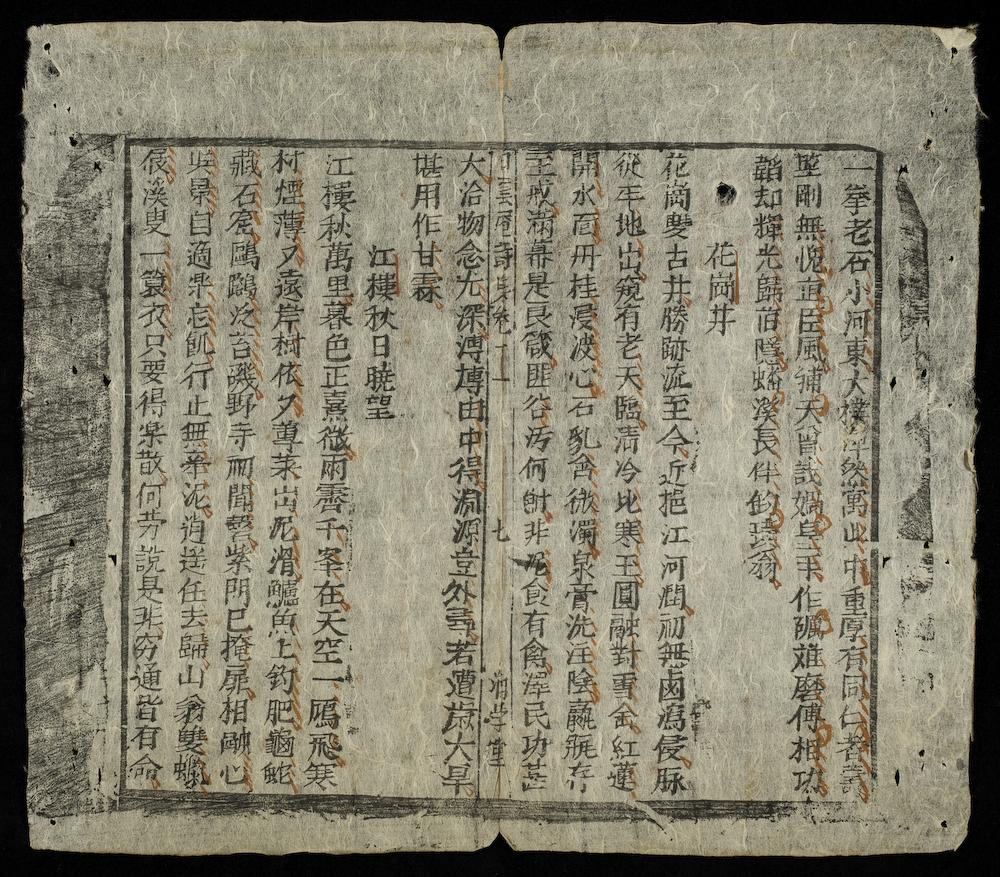 一拳老石小河東大樸渾然寓此中重厚有同仁者壽
堅剛無愧直臣風補天曾說媧皇手作礪難磨傅相功
韜却輝光歸舊隱蟠溪長伴釣璜翁
花崗井
花崗雙古井勝跡流至今近挹江河潤初無鹵瀉侵脉
從平地出窺有老天臨清冷比寒玉圓融對雪金紅蓮
開水面丹桂浸波心石乳含微濁泉膏洗汪陰羸瓶存
至戒滿幕是良箴匪谷汚何射非泥食有禽澤民功甚
七
大洽物念尤深溥博由中得淵源豈外尋若遭歲大旱
堪用作甘霖
江樓秋日曉望
江樓秋萬里暮色正熹微雨霽千峯在天空一鴈飛寒
村煙薄又遠岸樹依夕蓴菜出泥滑鱸魚上釣肥龜蛇
藏石窟鷗鷁泛苔磯野寺而聞磬柴門已掩扉相酬心
吳景自適鼎忘飢行止無牵泥逍遙任去歸山翁雙蠟
屐溪叟一簑衣只要得樂散何劳說是非穷通皆有命